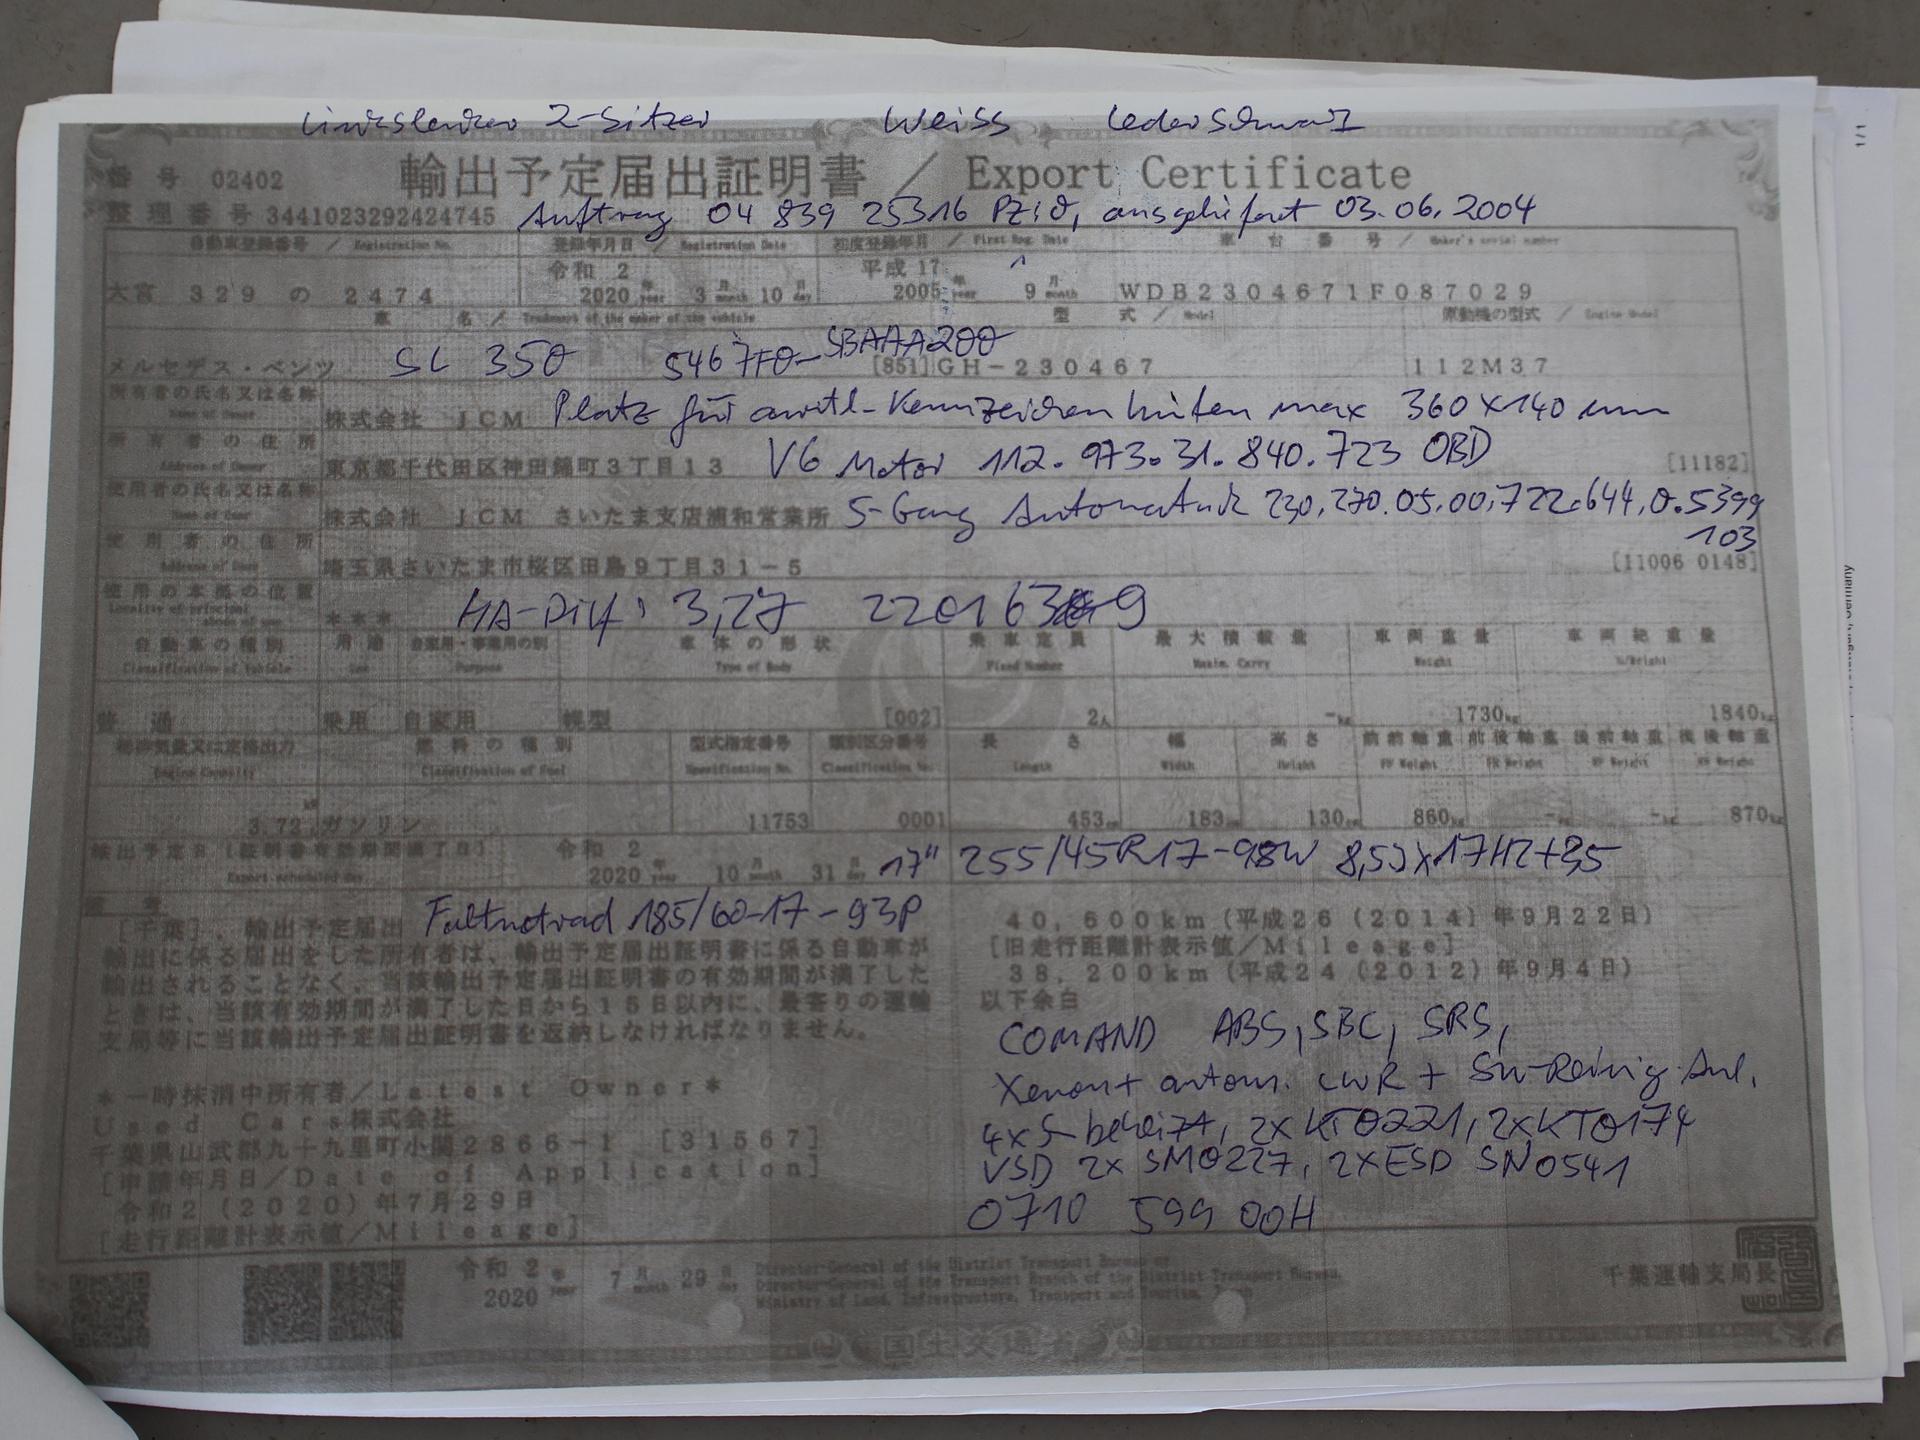 Linkslenker 2-Sitzer Weiss Leder Schwarz
番号 02402 輸出予定届出証明書 / Export Certificate
整理番号 3441023292424745 Auftrag 04 839 25316 ausgeliefert 03.06.2004
自動車登録番号 / Registration No. 登録年月日 / Registration Date 初度登録年月 / First Reg. Date 車台番号 / Maker's serial number
令和 2 平成 17
大宮 329 の 2474 2020年year 3月month 10日day 2005年year 9月month WDB2304671F087029
車名 / Trademark of the maker of the vehicle 型式 / Model 原動機の型式 / Engine Model
メルセデス・ベンツ SL 350 5467F0-SBAAA200 [851] GH-230467 112M37
所有者の氏名又は名称
Name of Owner 株式会社 JCM Platz für amtl-Kennzeichen hinten max 360x140 mm
所有者の住所
Address of Owner 東京都千代田区神田錦町3丁目13 V6 Motor 112.973.31.840.723 OBD [11182]
使用者の氏名又は名称
Name of User 株式会社 JCM さいたま支店浦和営業所 5-Gang Automatik 230.270.05.00,722.644,0.5399
103
使用者の住所
Address of User 埼玉県さいたま市桜区田島9丁目31-5 [11006 0148]
使用の本拠の位置
Locality of principal abode of use *** HA-Diff: 3,27
自動車の種別 用途 自家用・事業用の別 車体の形状 乗車定員 最大積載量 車両重量 車両総重量
Classification of Vehicle Use Purpose Type of Body Fixed Number Maxim. Carry Weight G/Weight
普通 乗用 自家用 幌型 [002] 2人 -kg 1730kg 1840kg
総排気量又は定格出力 燃料の種別 型式指定番号 類別区分番号 長さ 幅 高さ 前前軸重 前後軸重 後前軸重 後後軸重
Engine Capacity Classification of Fuel Specification No. Classification No. Length Width Height FF Weight FR Weight RF Weight RR Weight
kW
3.72 ガソリン 11753 0001 453cm 183cm 130cm 860kg -kg -kg 870kg
輸出予定日 [証明書有効期間満了日] 令和 2
Export scheduled day 2020年year 10月month 31日day 17" 255/45R17-98W 8,5Jx17H2+35
備考
[千葉], 輸出予定届出 Faltnotrad 185/60-17-93P
輸出に係る届出をした所有者は、輸出予定届出証明書に係る自動車が
輸出されることなく、当該輸出予定届出証明書の有効期間が満了した
ときは、当該有効期間が満了した日から15日以内に、最寄りの運輸
支局等に当該輸出予定届出証明書を返納しなければなりません。
*一時抹消中所有者/Latest Owner*
Used Cars株式会社
千葉県山武郡九十九里町小関2866-1 [31567]
[申請年月日/Date of Application]
令和2(2020)年7月29日
[走行距離計表示値/Mileage]
40,600km(平成26(2014)年9月22日)
[旧走行距離計表示値/Mileage]
38,200km(平成24(2012)年9月4日)
以下余白
COMAND ABS, SBC, SRS,
Xenon + autom. LWR + SW-Reinig. Anl.
4x S-beheizt, 2xKT0221, 2xKT0174
VSD 2x SM0227, 2xESD SN0541
0710 599 00H
令和 2
2020年year 7月month 29日day
Director-General of the District Transport Bureau or
Director-General of the Transport Branch of the District Transport Bureau,
Ministry of Land, Infrastructure, Transport and Tourism, Japan
千葉運輸支局長
国土交通省